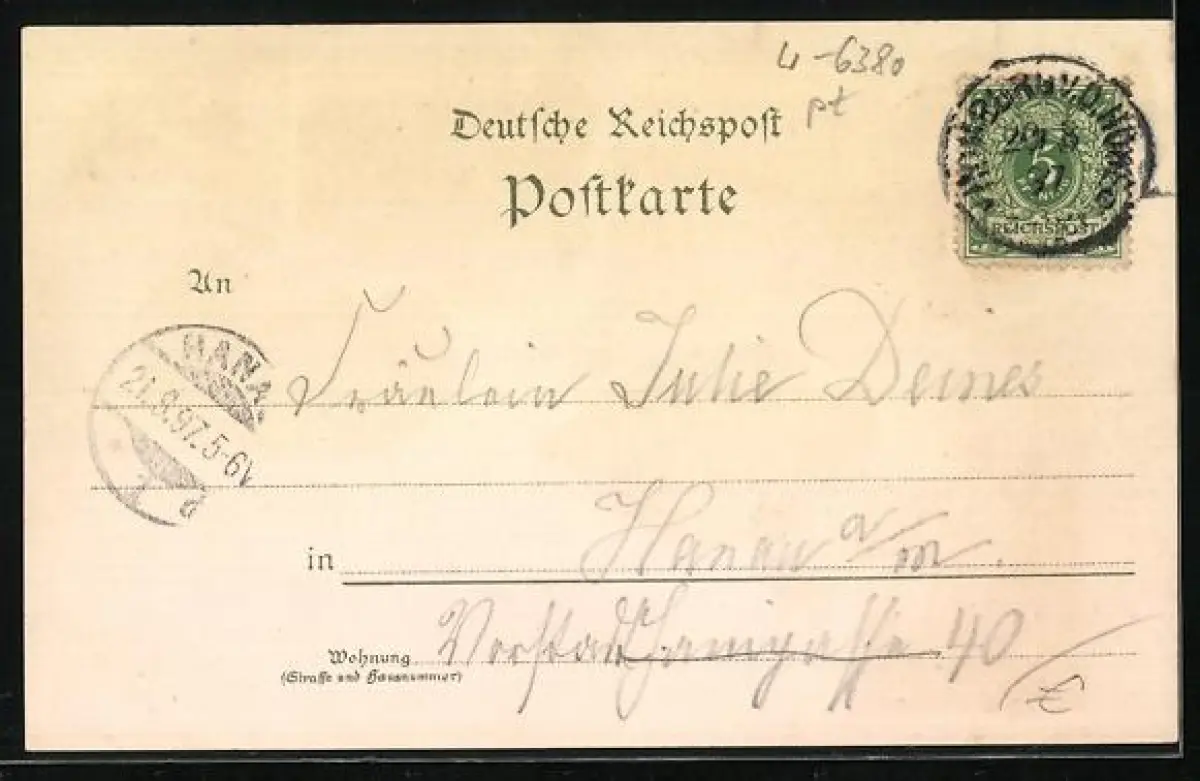 4-6380
pt
Deutsche Reichspost
Postkarte
HOMBURG V.D. HÖHE
5
REICHSPOST
An
HANA
8.97. 5-6N
Fräulein Julie Deines
in Hanau a/m.
Wohnung 40
(Strasse und Hausnummer)